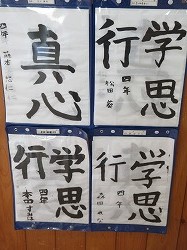 真心
四年
学思行
四年
松田 葵
学思行
四年
本田すみ
学思行
四年